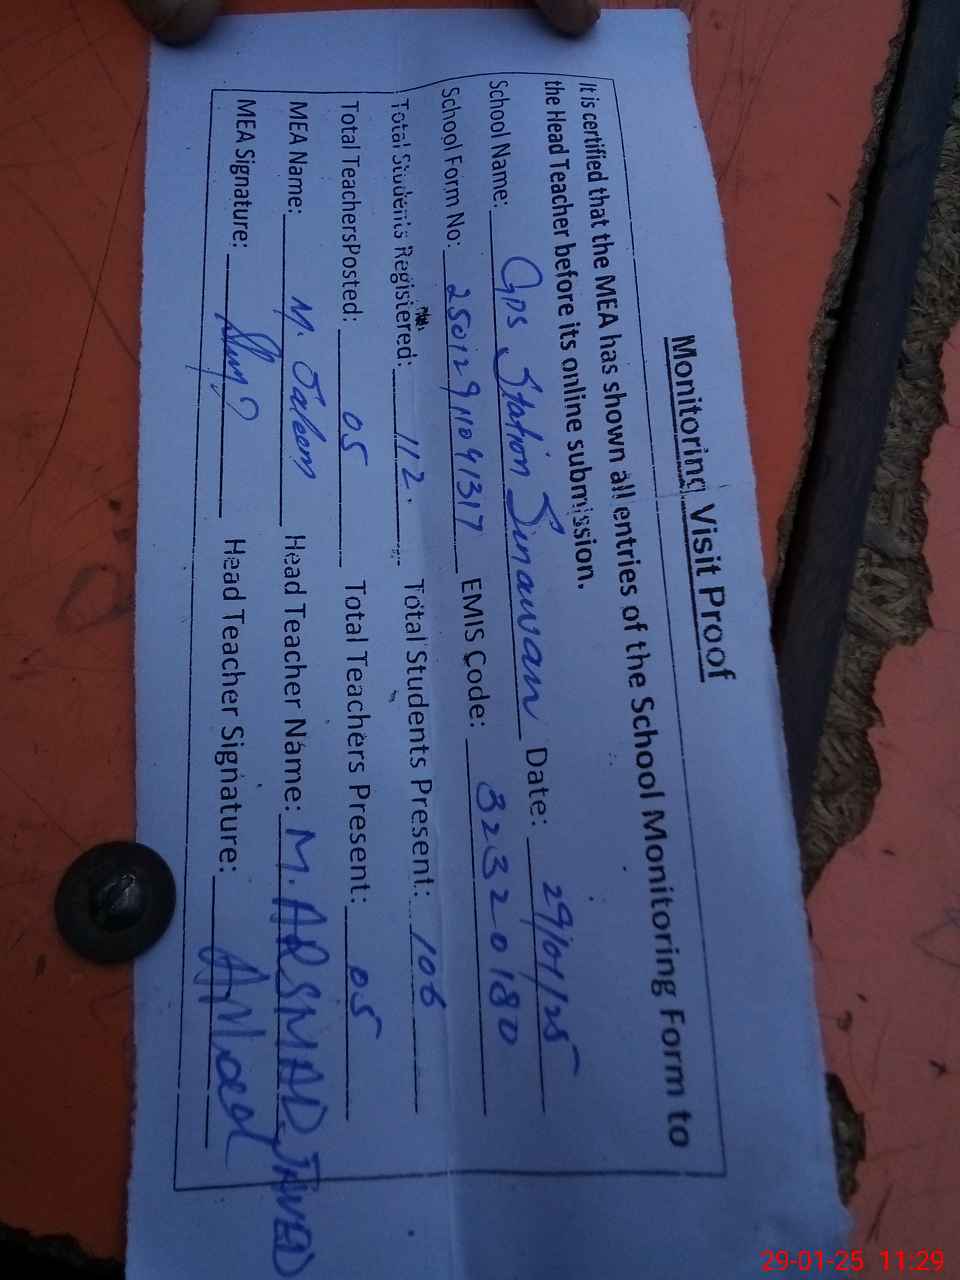 Monitoring Visit Proof
It is certified that the MEA has shown all entries of the School Monitoring Form to
the Head Teacher before its online submission.
School Name: GPS Station Sinawan Date: 29/01/25
School Form No: 2501291041317 EMIS Code: 32320180
Total Students Registered: 112. Total Students Present: 106
Total TeachersPosted: 05 Total Teachers Present: 05
MEA Name: M. Saleem Head Teacher Name: M. ARSHAD JAVED
MEA Signature: Head Teacher Signature:
29-01-25 11:29